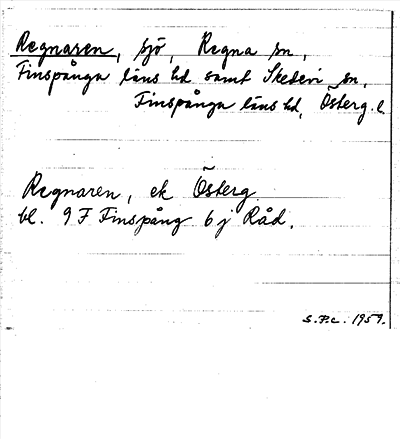 Regnaren, sjö, Regna sn,
Finspånga läns hd samt Skedevi sn,
Finspånga läns hd, Österg. l.
Regnaren, ek Österg.
bl. 9 F Finspång 6 j Råd.
S.P.c. 1959.